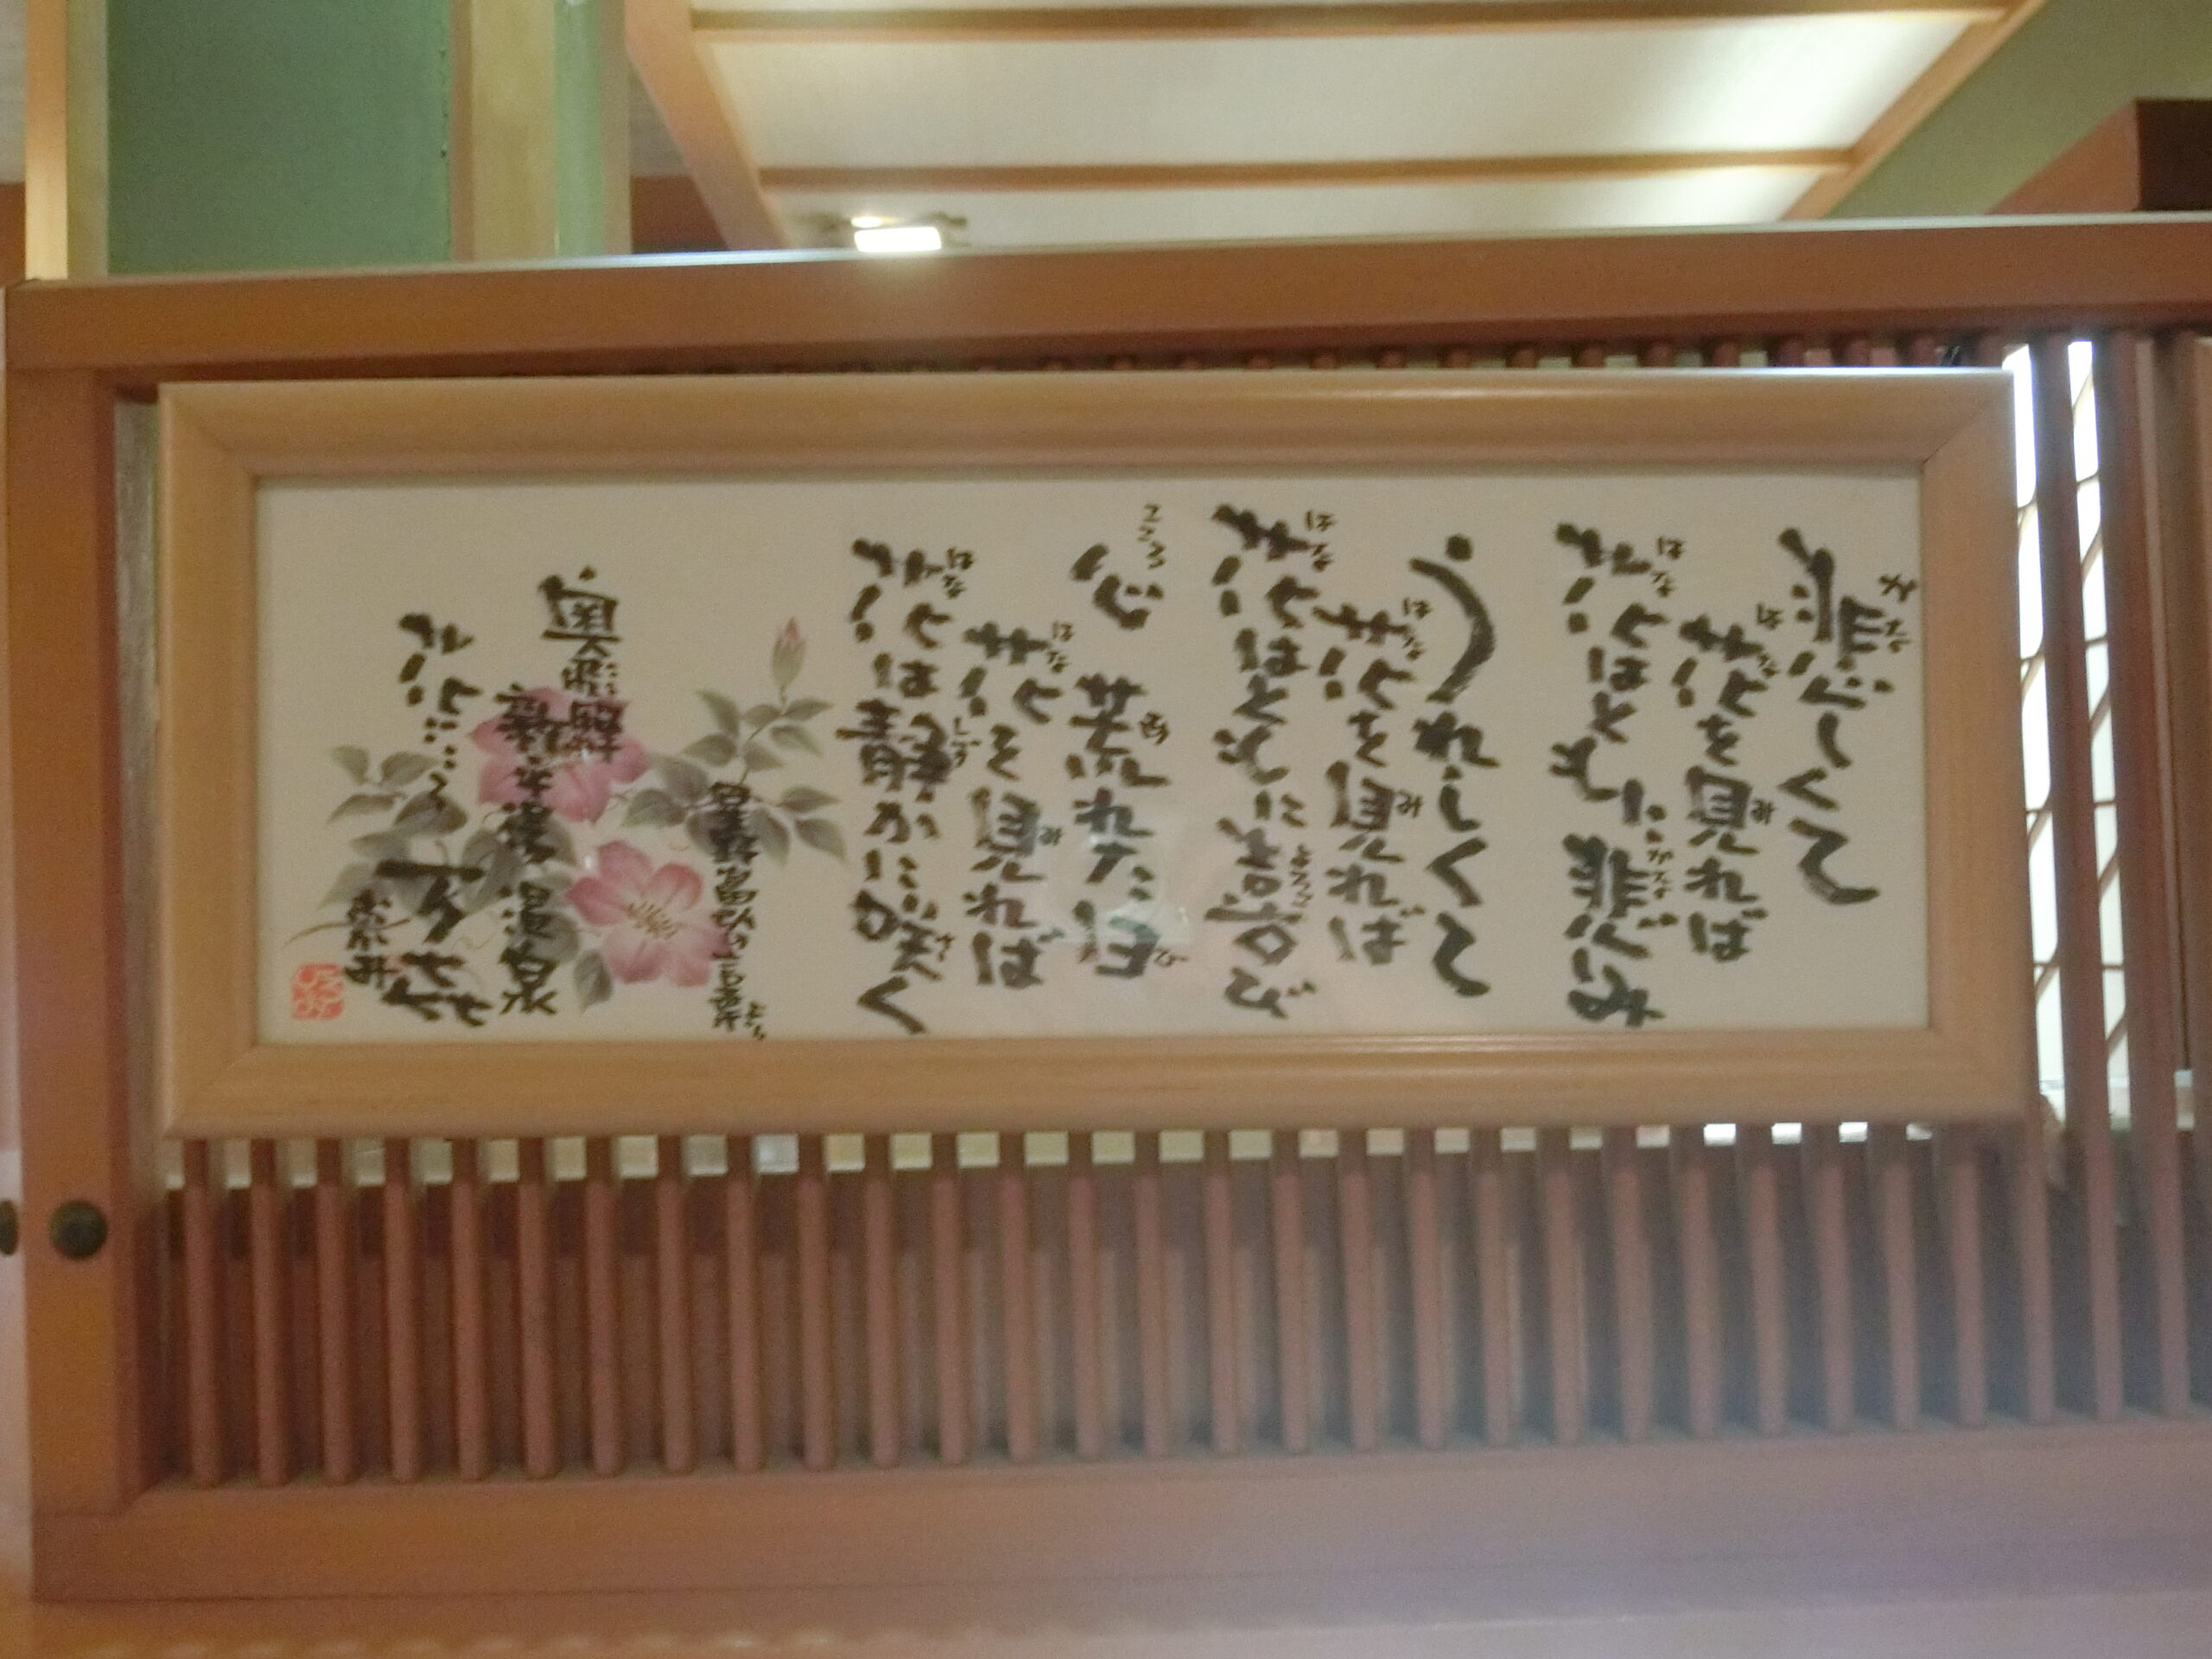 悲しくて
花を見れば
花はともに悲しみ
うれしくて
花を見れば
花はともに喜び
心 荒れた日
花を見れば
花は静かに咲く
星野富弘
より
奥飛騨
新平湯温泉
花ごころ
万喜